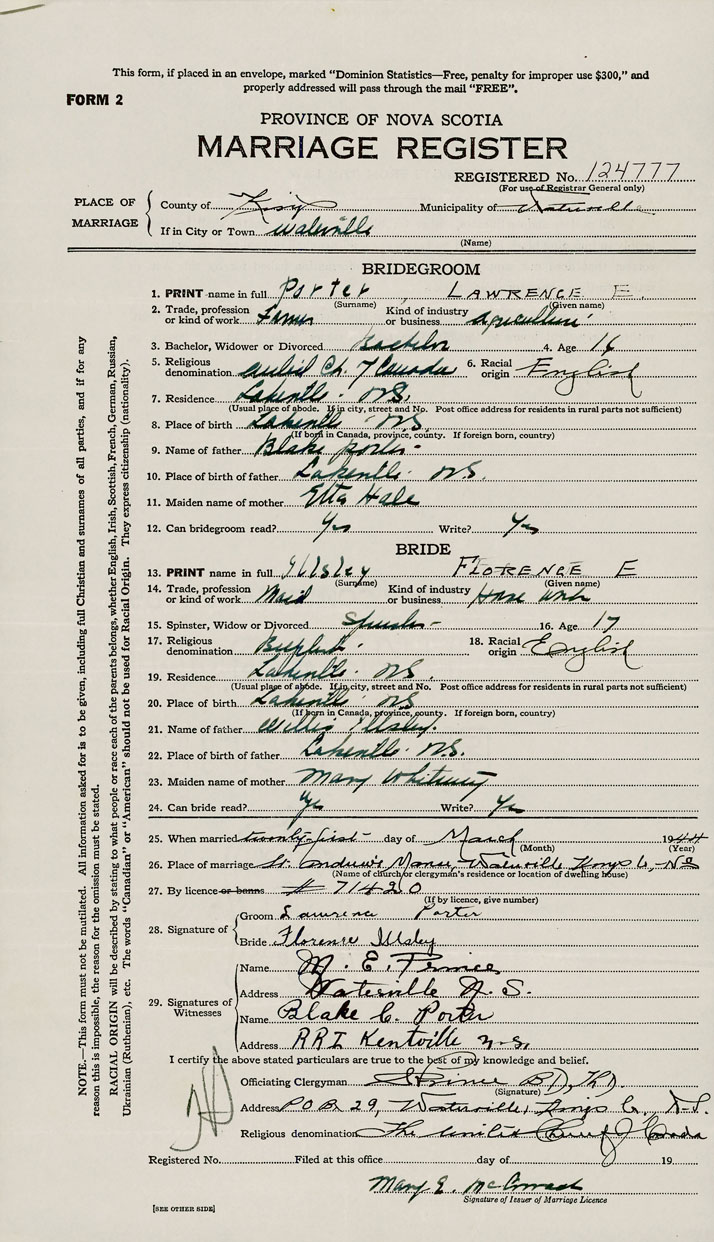 This form, if placed in an envelope, marked "Dominion Statistics—Free, penalty for improper use $300," and
properly addressed will pass through the mail "FREE".
FORM 2
PROVINCE OF NOVA SCOTIA
MARRIAGE REGISTER
REGISTERED No. 124777
(For use of Registrar General only)
PLACE OF MARRIAGE
County of Kings Municipality of Waterville
If in City or Town Waterville
(Name)
BRIDEGROOM
1. PRINT name in full Porter, LAWRENCE E.
(Surname) (Given name)
2. Trade, profession or kind of work Farmer Kind of industry or business Agriculture
3. Bachelor, Widower or Divorced Bachelor 4. Age 16
5. Religious denomination United Ch. of Canada 6. Racial origin English
7. Residence Lakeville N.S.
(Usual place of abode. If in city, street and No. Post office address for residents in rural parts not sufficient)
8. Place of birth Lakeville N.S.
(If born in Canada, province, county. If foreign born, country)
9. Name of father Blake Porter
10. Place of birth of father Lakeville N.S.
11. Maiden name of mother Etta Hale
12. Can bridegroom read? Yes Write? Yes
BRIDE
13. PRINT name in full Illsley FLORENCE E
(Surname) (Given name)
14. Trade, profession or kind of work Maid Kind of industry or business House work
15. Spinster, Widow or Divorced Spinster 16. Age 17
17. Religious denomination Baptist 18. Racial origin English
19. Residence Lakeville N.S.
(Usual place of abode. If in city, street and No. Post office address for residents in rural parts not sufficient)
20. Place of birth Lakeville N.S.
(If born in Canada, province, county. If foreign born, country)
21. Name of father Willis Illsley.
22. Place of birth of father Lakeville N.S.
23. Maiden name of mother Mary Whitney
24. Can bride read? Yes Write? Yes
25. When married twenty-first day of March 1944
(Month) (Year)
26. Place of marriage St. Andrew's Manse, Waterville Kings Co., NS
(Name of church or clergyman's residence or location of dwelling house)
27. By licence or banns # 71420
(If by licence, give number)
28. Signature of
Groom Lawrence Porter
Bride Florence Illsley
29. Signatures of Witnesses
Name M. E. Prince
Address Waterville N. S.
Name Blake C. Porter
Address RR1 Kentville N.S.
I certify the above stated particulars are true to the best of my knowledge and belief.
Officiating Clergyman Prince B.D.,
(Signature)
Address P O B 29, Waterville, Kings Co. N.S.
Religious denomination The United Church of Canada
Registered No. Filed at this office day of 19
Mary E. McConnell
Signature of Issuer of Marriage Licence
[SEE OTHER SIDE]
NOTE.—This form must not be mutilated. All information asked for is to be given, including full Christian and surnames of all parties, and if for any
reason this is impossible, the reason for the omission must be stated.
RACIAL ORIGIN will be described by stating to what people or race each of the parents belongs, whether English, Irish, Scottish, French, German, Russian,
Ukrainian (Ruthenian), etc. The words "Canadian" or "American" should not be used for Racial Origin. They express citizenship (nationality).